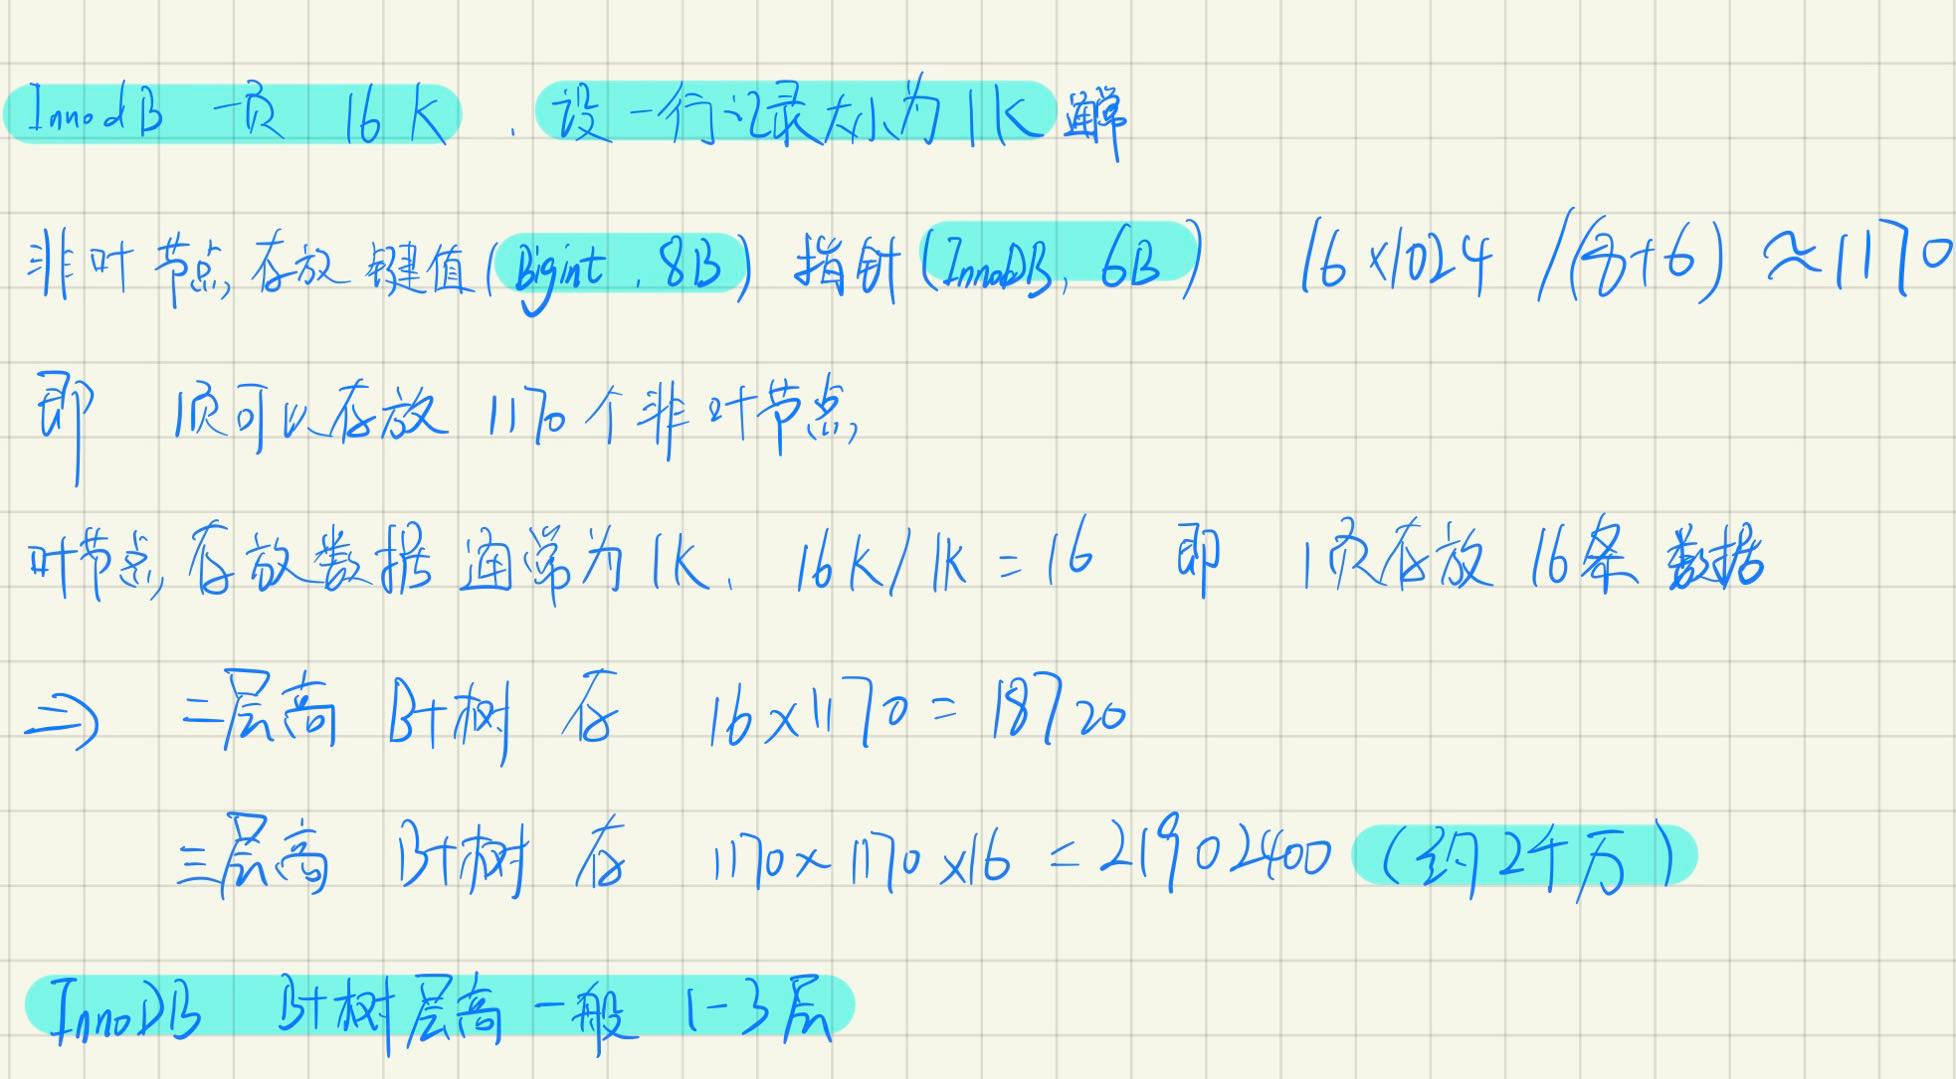 InnodB 一页 16 K . 设一行记录大小为1K 通常
非叶节点, 存放 键值(Bigint , 8B) 指针(InnoDB, 6B) 16×1024 /(8+6) ≈1170
即 1页可以存放 1170个非叶节点,
叶节点, 存放数据通常为1K、 16K/1K = 16 即 1页存放 16条 数据
⇒ 二层高 B+树 存 16×1170 = 18720
三层高 B+树 存 1170×1170×16 = 21902400 (约2千万)
InnoDB B+树层高一般 1-3层